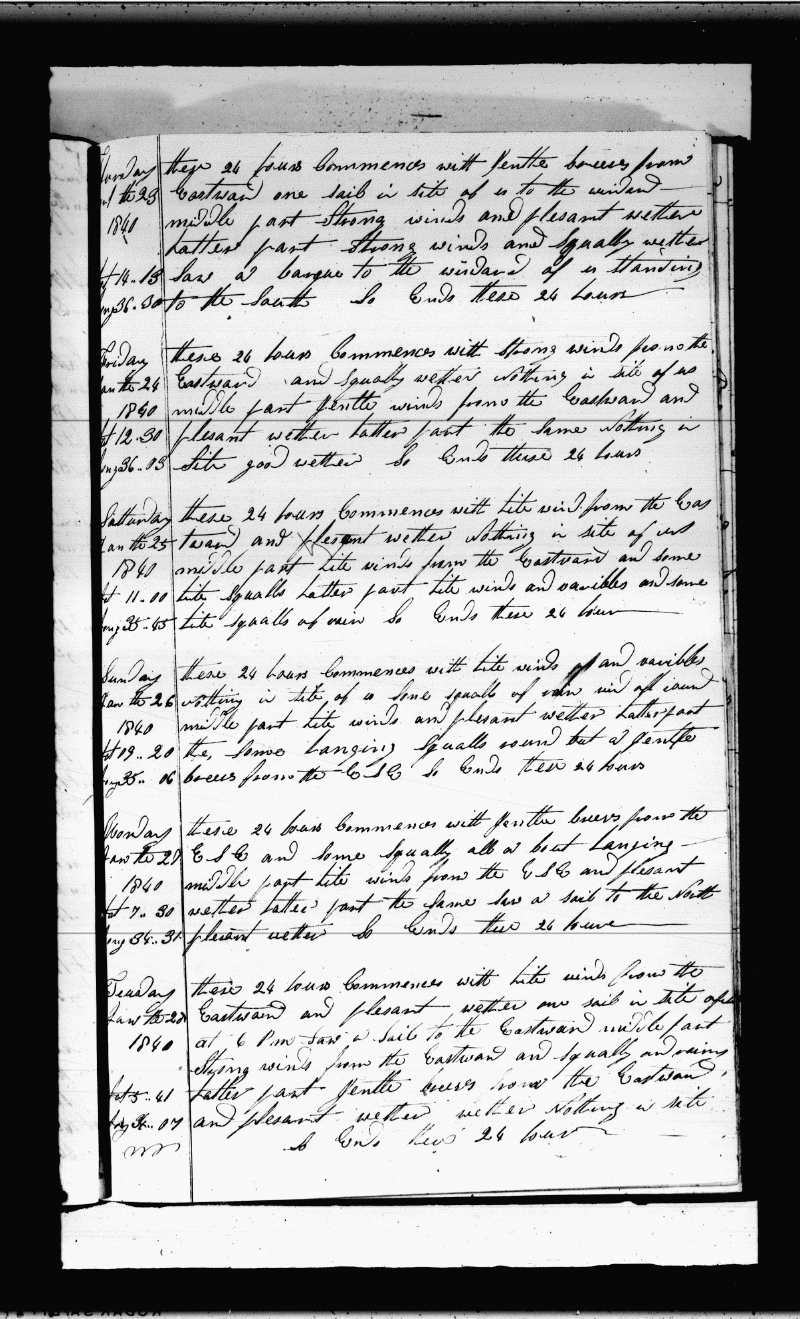 these 24 hours Commences with Gentle breeses from
Eastward one sail in site of us to the windard
1840 middle part Strong winds and plesant wether
Latter part Strong winds and Squally wether
14..15 Saw a barque to the windard of us standing
36..30 to the South So Ends these 24 hours
Friday these 24 hours Commences with Strong winds from the
Jan the 24 Eastward and Squally wether Nothing in site of us
1840 middle part Gentle winds from the Eastward and
12..30 plesant wether Latter part the Same Nothing in
Long 36..03 Site good wether So Ends these 24 hours
Satturday these 24 hours Commences with Lite wind from the Eas
Jan the 25 tward and plesent wether Nothing in site of us
1840 middle part Lite winds from the Eastward and some
Lat 11..00 Lite Squalls Latter part Lite winds and varibles and some
Long 35..45 Lite squalls of rain So Ends these 24 hour
Sunday these 24 hours Commences with Lite winds and varibles
Jan the 26 Nothing in site of us Some squalls of rain all round
1840 middle part Lite winds and plesant wether Latter part
Lat 09..20 the Same hanging Squalls round but a Gentle
Long 35.. 06 breees from the E S E So Ends these 24 hours
Monday these 24 hours Commences with Gentle brees from the
Jan the 27 E S E and some Squally all a bout hanging
1840 middle part Lite winds from the E S E and plesant
Lat 7..30 wether Latter part the Same Saw a sail to the North
Long 34..31 plesent wether So Ends these 24 houre
Teusday these 24 hours Commences with Lite winds from the
Jan the 28 Eastward and plesent wether one sail in site of us
1840 at 6 Pm Saw a Sail to the Eastward middle part
Strong winds from the Eastward and squally and rainy
Lat 5..41 Latter part Gentle brees from the Eastward
Long 34..07 and plesant wether wether Nothing in site
So Ends these 24 hour